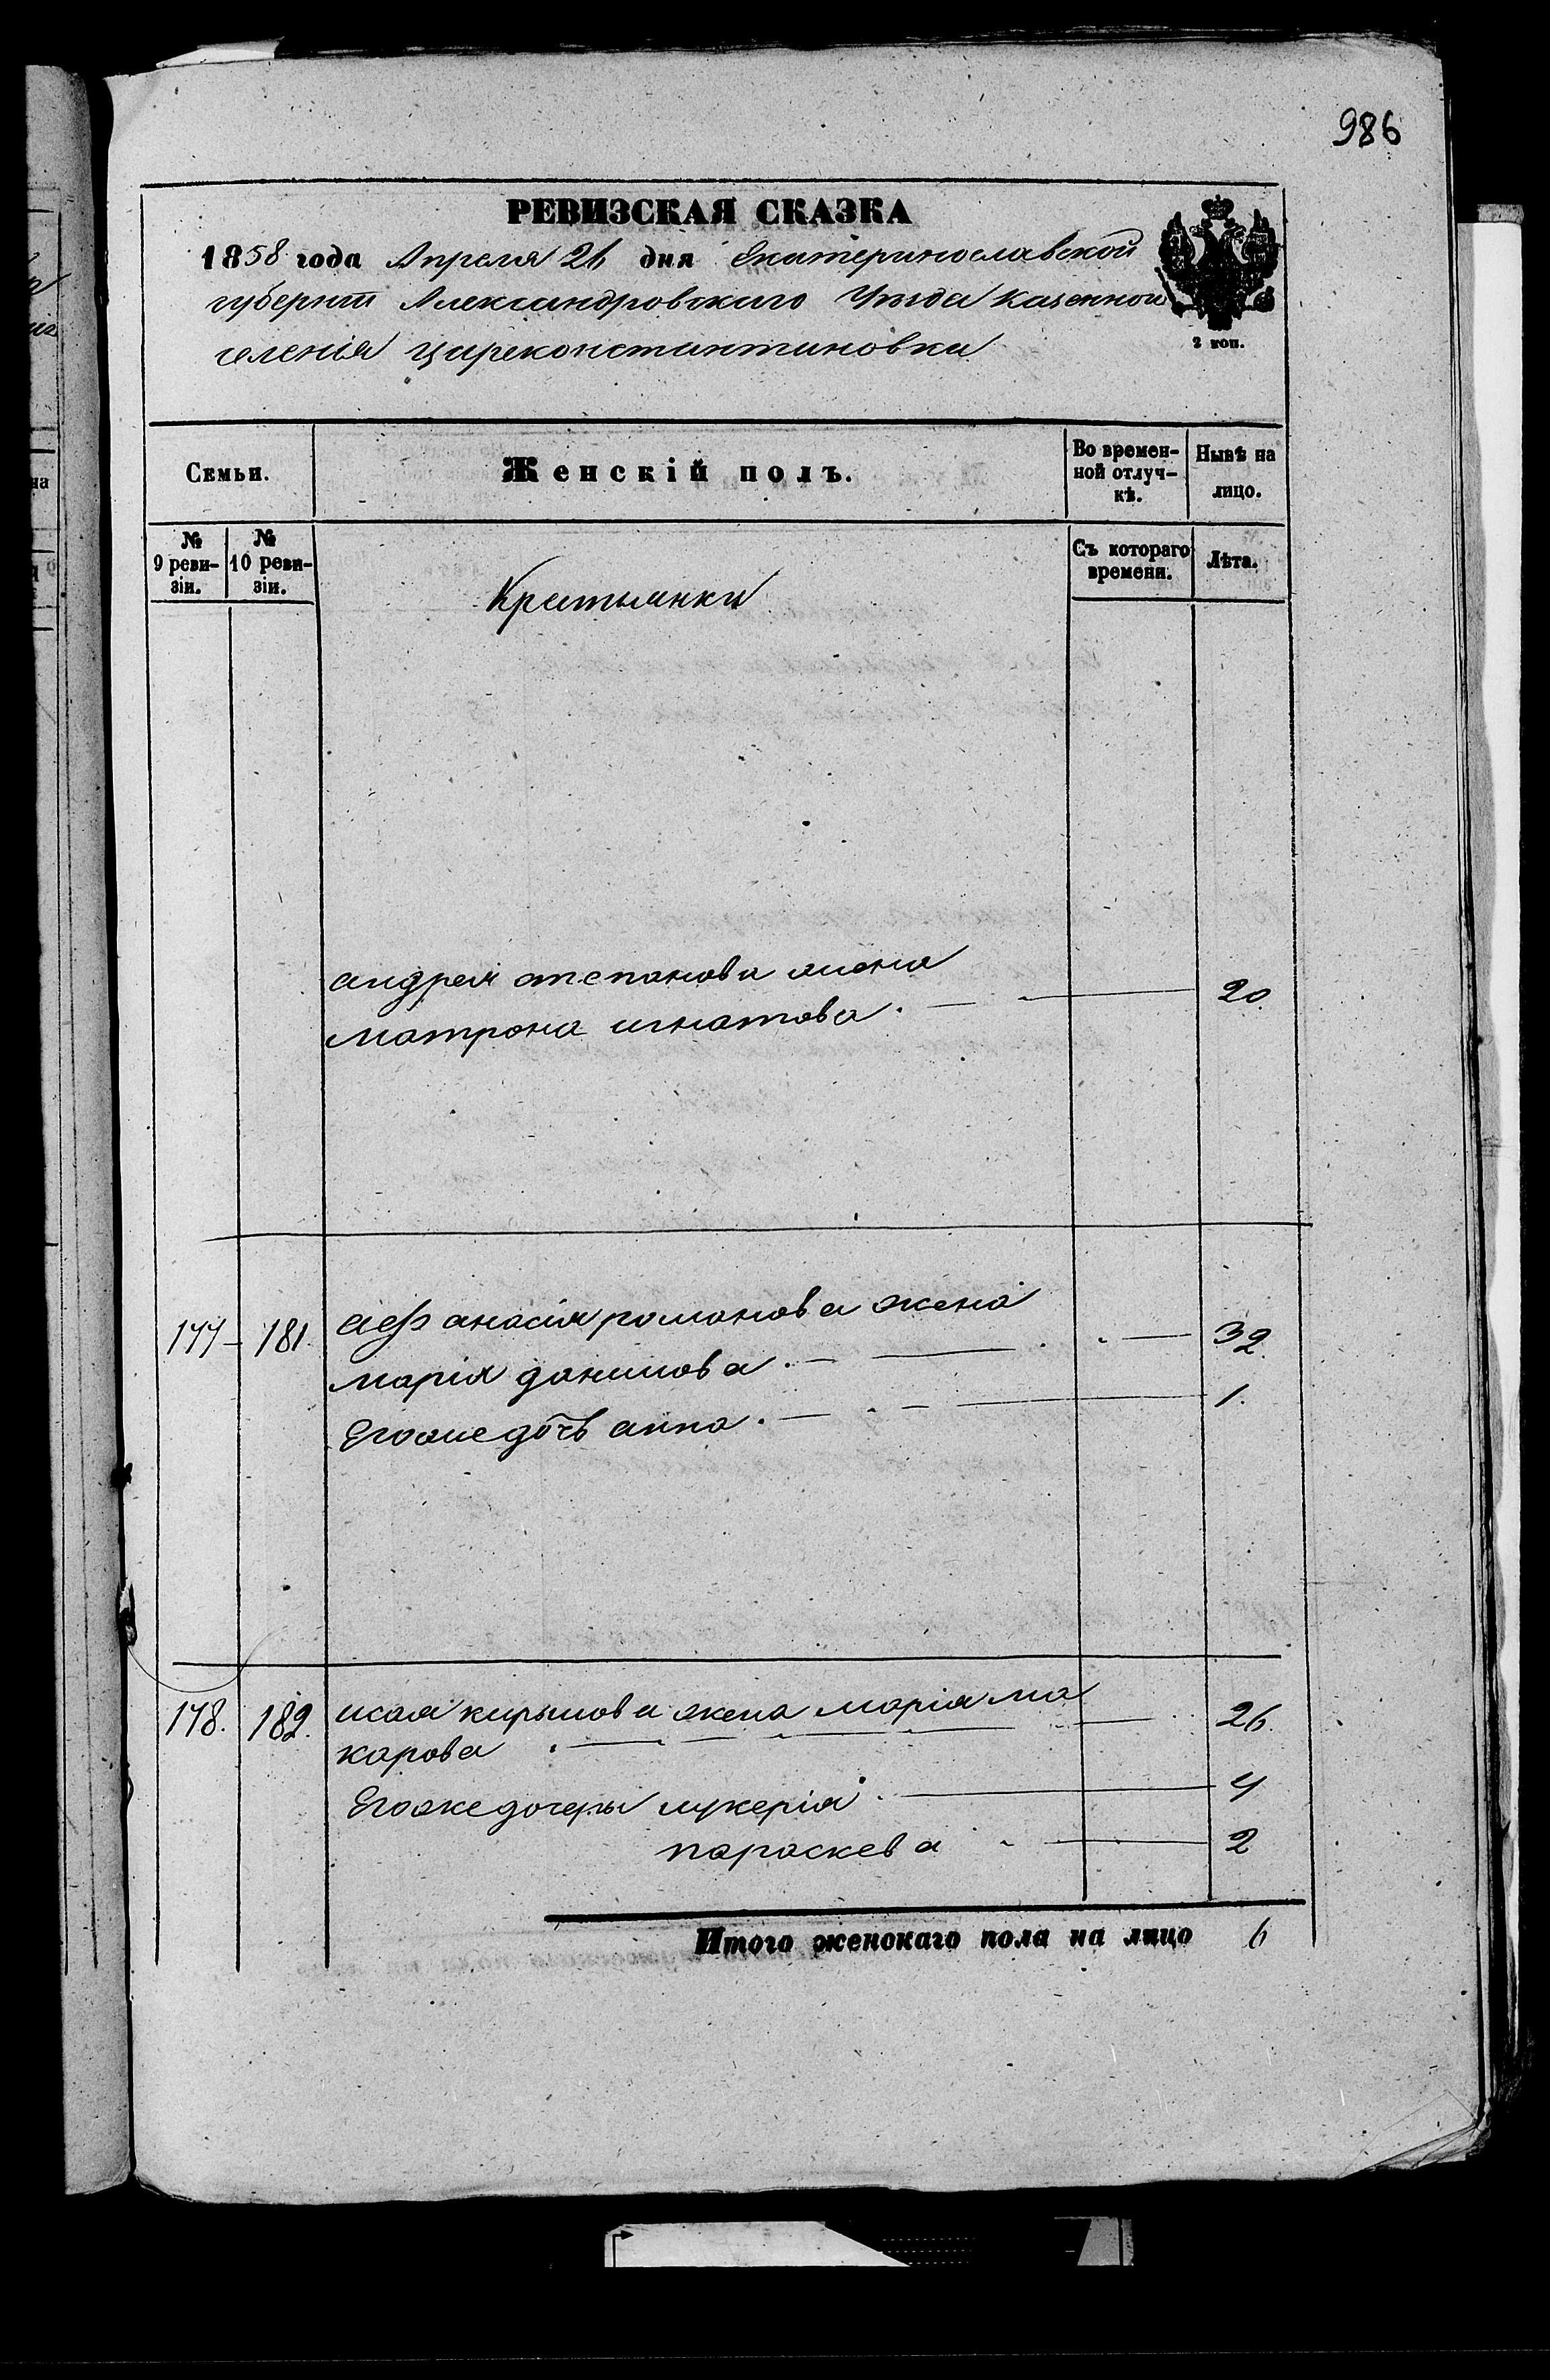 986
РЕВИЗСКАЯ СКАЗКА
1858 года Апреля 26 дня Екатеринославской
губернии Александровскаго Уезда казенной
селенія Цареконстантиновки
2 коп.
Семьи.
Женскій полъ.
Во времен-
ной отлуч-
кѣ.
Нынѣ на
лицо.
№
9 реви-
зіи.
№
10 реви-
зіи.
Съ котораго
времени.
Лѣта.
Крестьянки
андрея степанова жена
матрона игнатова. 20.
177 - 181. афанасия романова жена
марія данилова. 32.
Егоже дочь анна. 1.
178. 182. исая кирылова жена марія ма
карова 26.
Егоже дочеры лукерія 4
параскева 2
Итого женскаго пола на лицо 6